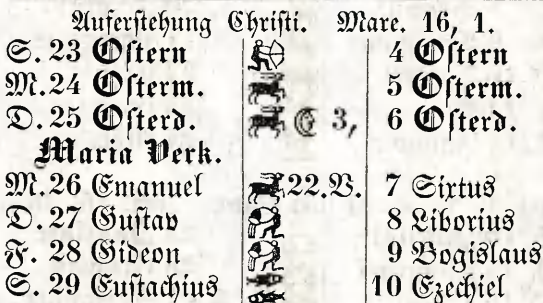 Auferstehung Christi. Marc. 16, 1.
S. 23 Ostern 4 Ostern
M. 24 Osterm. 5 Osterm.
D. 25 Osterd. ☾ 3, 6 Osterd.
Maria Verk.
M. 26 Emanuel 22. V. 7 Sixtus
D. 27 Gustav 8 Liborius
F. 28 Gideon 9 Bogislaus
S. 29 Eustachius 10 Ezechiel